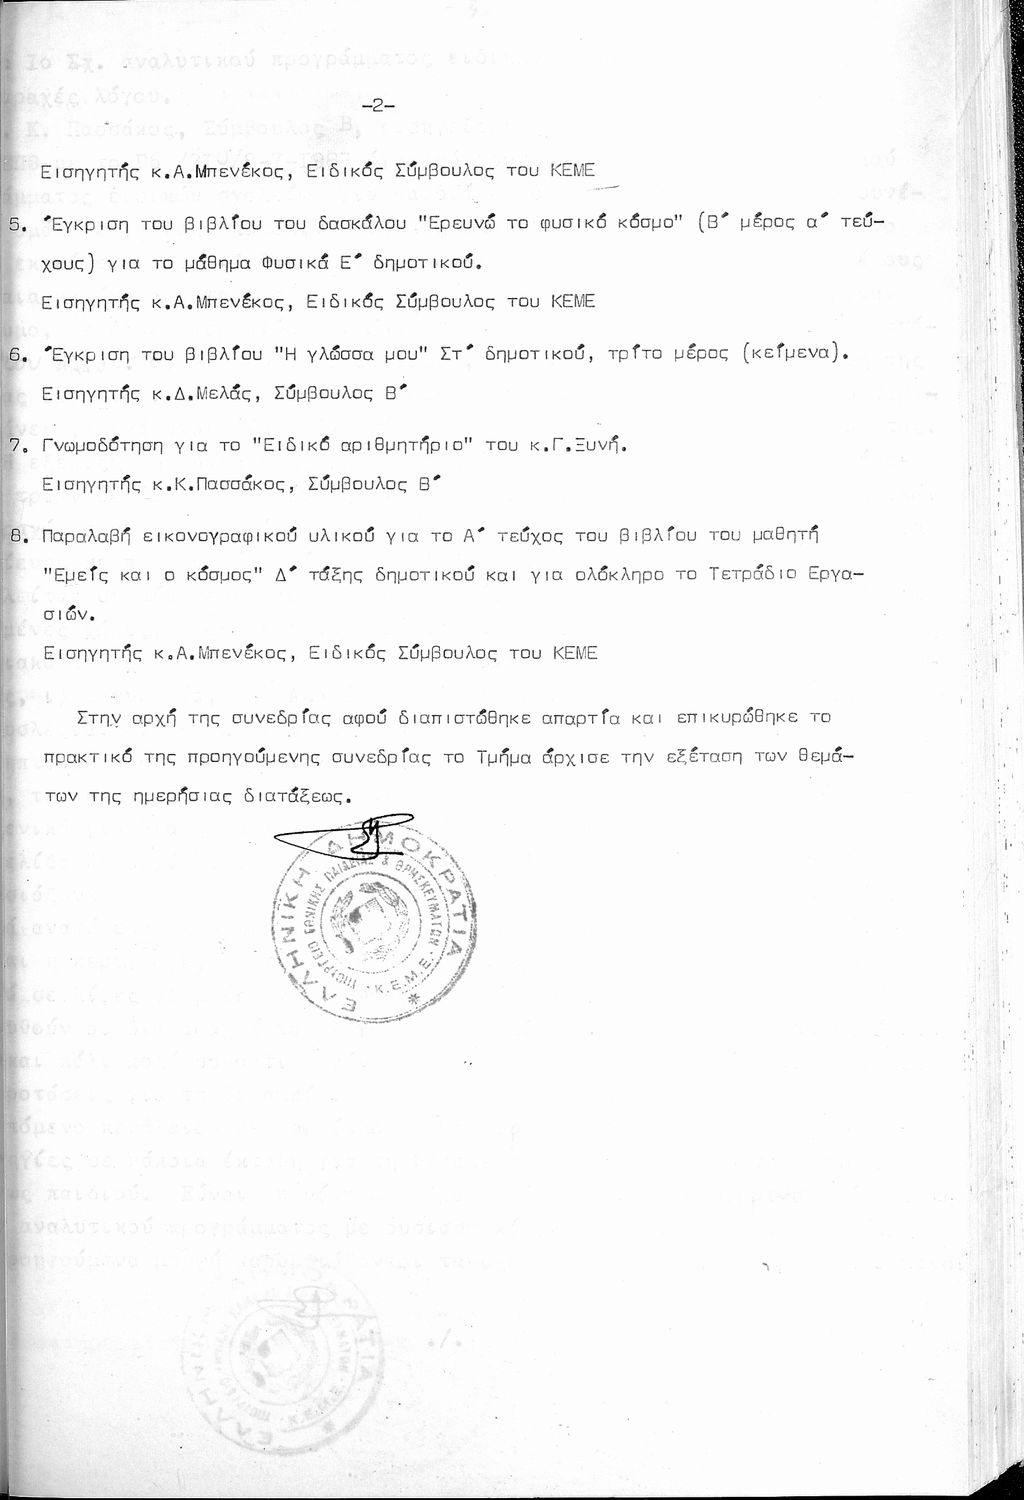 -2-
Εισηγητής κ.Α.Μπενέκος, Ειδικός Σύμβουλος του ΚΕΜΕ
5. Έγκριση του βιβλίου του δασκάλου "Ερευνώ το φυσικό κόσμο" (Β΄ μέρος α΄ τεύ-
χους) για το μάθημα Φυσικά Ε΄ δημοτικού.
Εισηγητής κ.Α.Μπενέκος, Ειδικός Σύμβουλος του ΚΕΜΕ
6. Έγκριση του βιβλίου "Η γλώσσα μου" Στ΄ δημοτικού, τρίτο μέρος (κείμενα).
Εισηγητής κ.Δ.Μελάς, Σύμβουλος Β΄
7. Γνωμοδότηση για το "Ειδικό αριθμητήριο" του κ.Γ.Ξυνή.
Εισηγητής κ.Κ.Πασσάκος, Σύμβουλος Β΄
8. Παραλαβή εικονογραφικού υλικού για το Α΄ τεύχος του βιβλίου του μαθητή
"Εμείς και ο κόσμος" Δ΄ τάξης δημοτικού και για ολόκληρο το Τετράδιο Εργα-
σιών.
Εισηγητής κ.Α.Μπενέκος, Ειδικός Σύμβουλος του ΚΕΜΕ
Στην αρχή της συνεδρίας αφού διαπιστώθηκε απαρτία και επικυρώθηκε το
πρακτικό της προηγούμενης συνεδρίας το Τμήμα άρχισε την εξέταση των θεμά-
των της ημερήσιας διατάξεως.
ΕΛΛΗΝΙΚΗ ΔΗΜΟΚΡΑΤΙΑ
ΥΠΟΥΡΓΕΙΟ ΕΘΝΙΚΗΣ ΠΑΙΔΕΙΑΣ & ΘΡΗΣΚΕΥΜΑΤΩΝ
Κ.Ε.Μ.Ε.